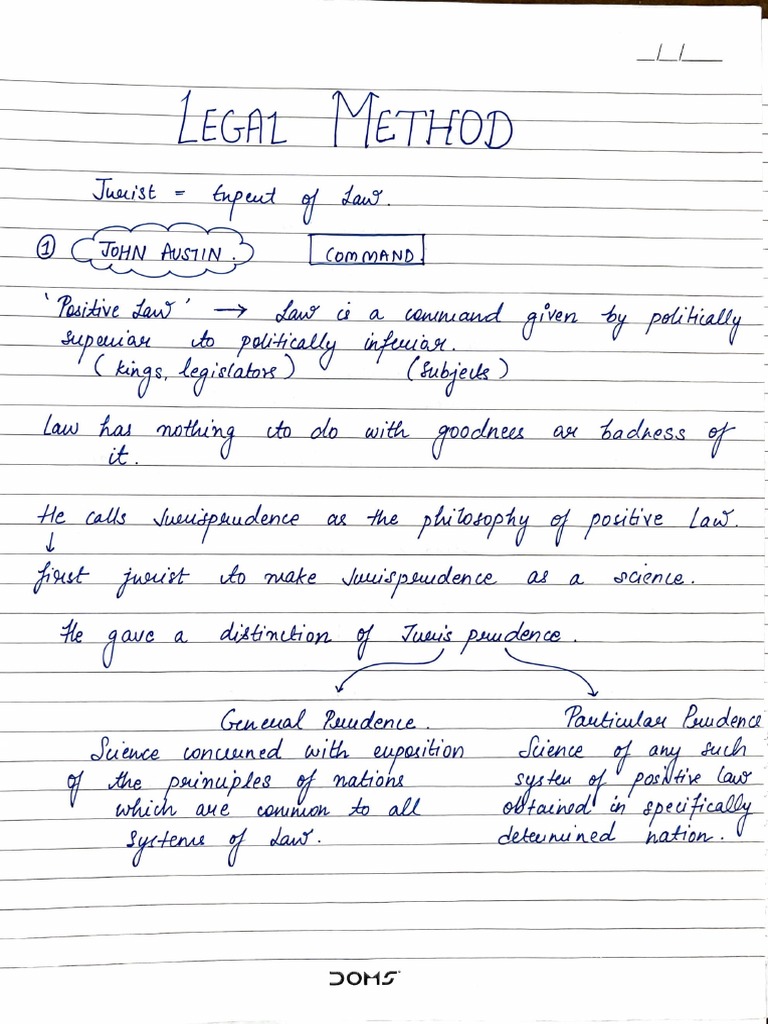 _/_/__
LEGAL METHOD
Jurist = Expert of Law.
① JOHN AUSTIN. COMMAND
'Positive Law' → Law is a command given by politically
superior to politically inferior.
(kings, legislators) (subjects)
Law has nothing to do with goodness or badness of
it.
He calls Jurisprudence as the philosophy of positive Law.
↓
first jurist to make Jurisprudence as a science.
He gave a distinction of Juris prudence.
General Prudence. Particular Prudence
Science concerned with exposition Science of any such
of the principles of nations system of positive law
which are common to all obtained in specifically
systems of Law. determined nation.
DOMS